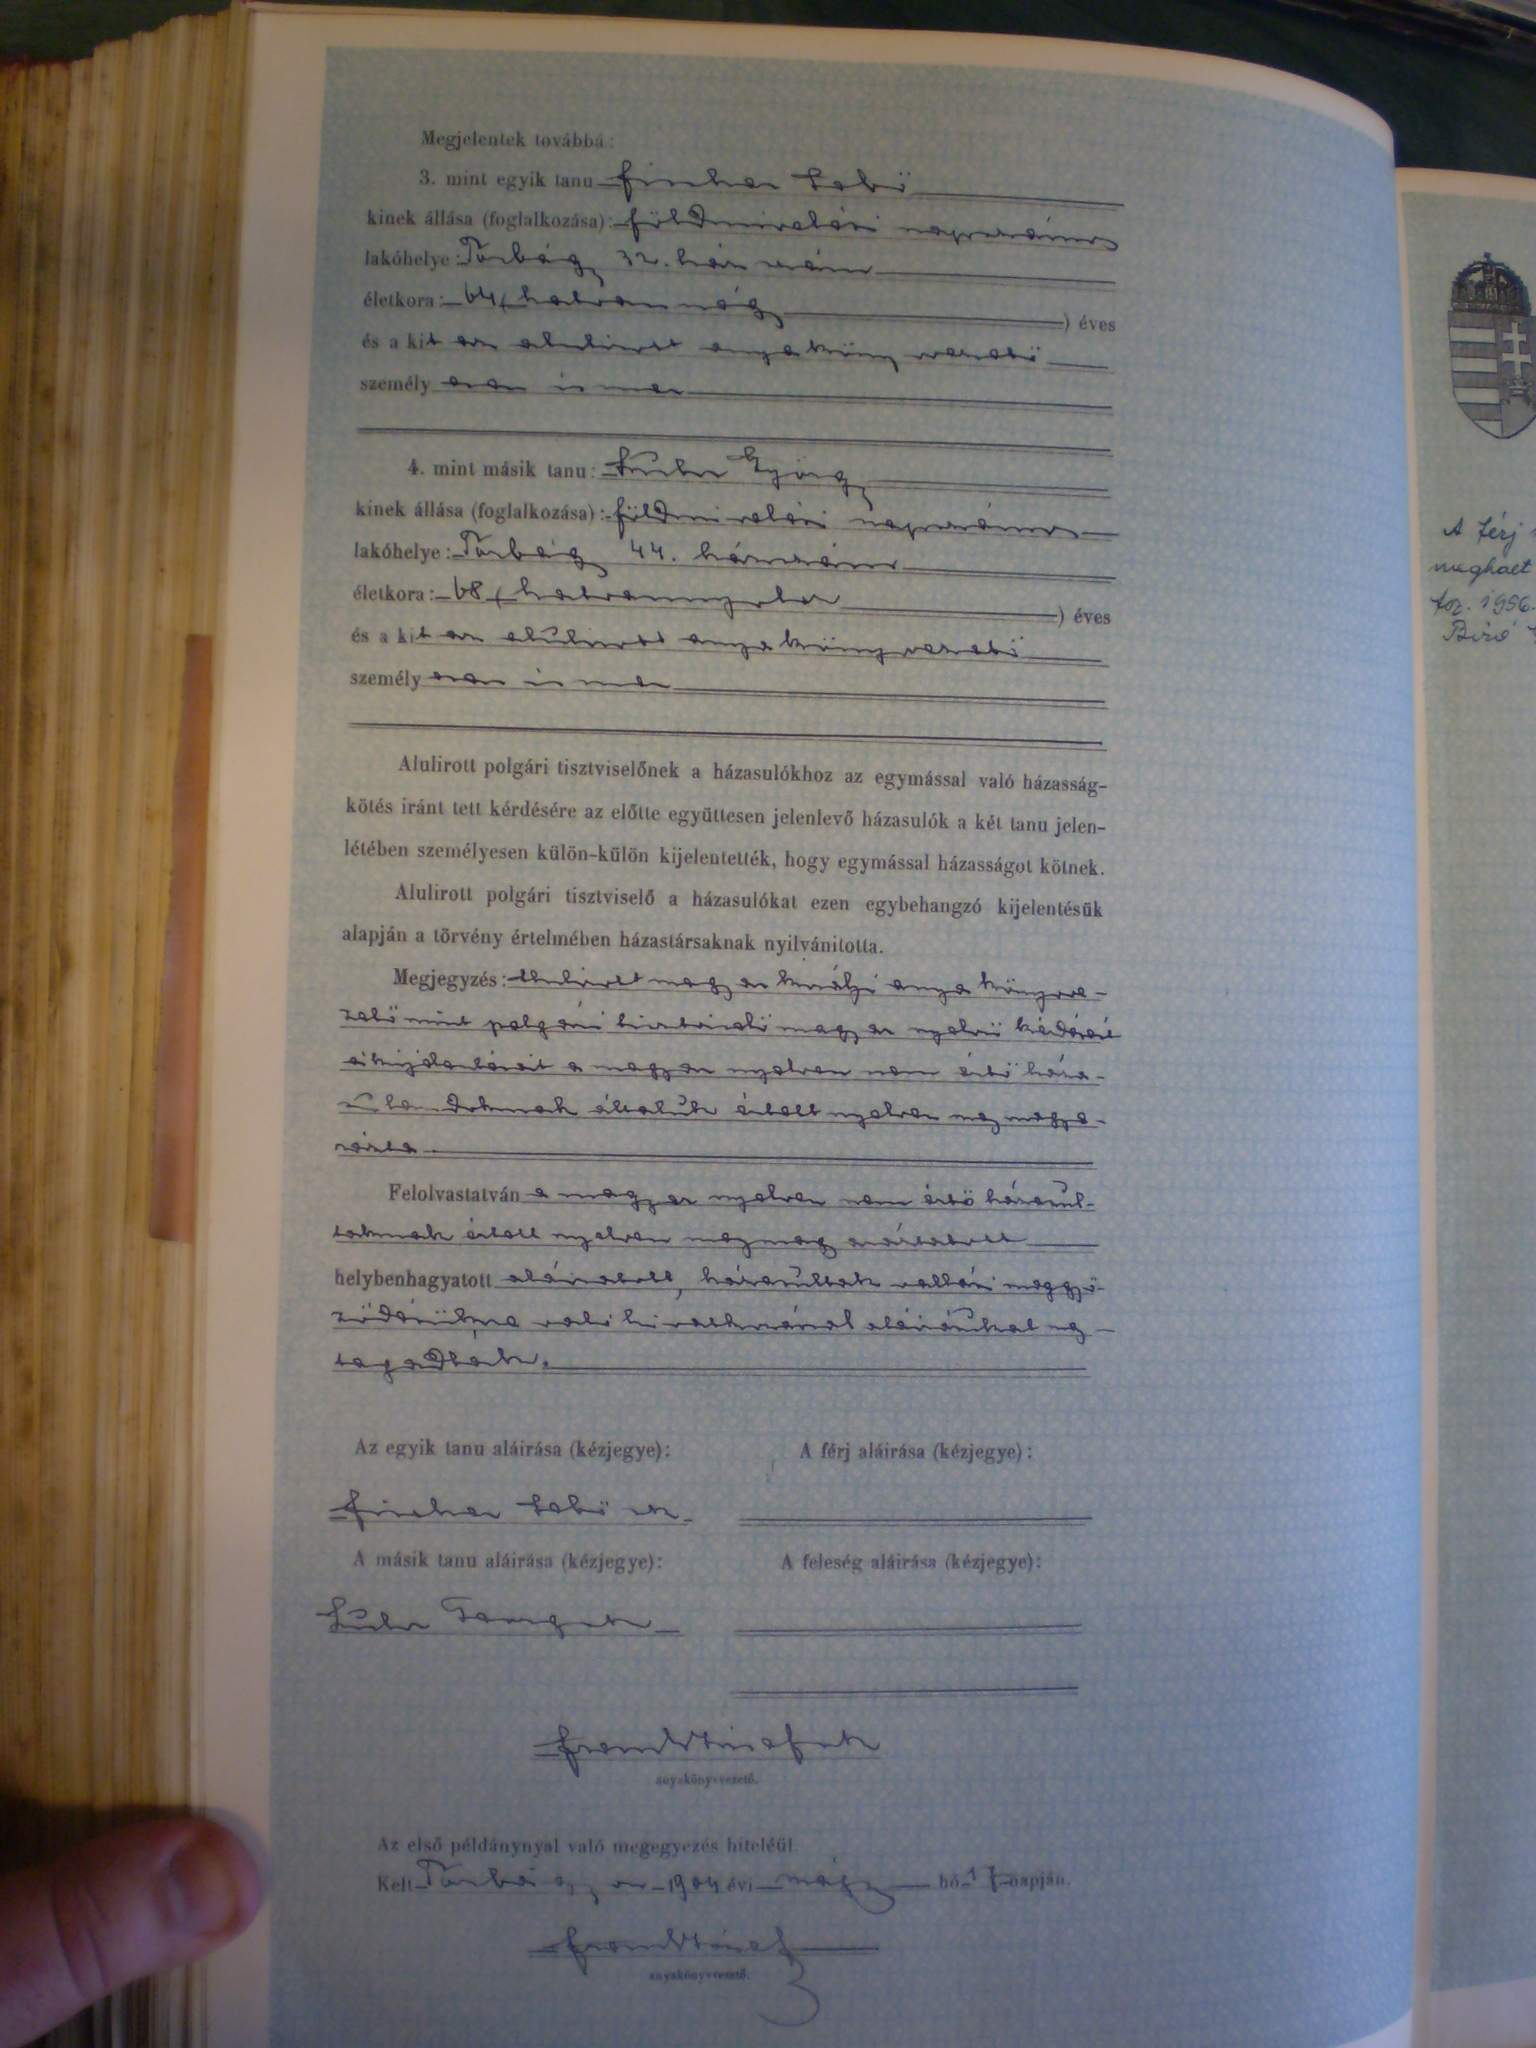 Megjelentek továbbá:
3. mint egyik tanu
kinek állása (foglalkozása): földmivelési napszámos
lakóhelye: Torbágy 32. ház szám
életkora: 64 (hatvannégy ) éves
és a kit az alulirott anyakönyvvezető
személyesen ismer
4. mint másik tanu: György
kinek állása (foglalkozása): földmivelési napszámos
lakóhelye: Torbágy 44. házszám
életkora: 68 (hatvannyolcz ) éves
és a kit az alulirott anyakönyvvezető
személyesen ismer
Alulirott polgári tisztviselőnek a házasulókhoz az egymással való házasság-
kötés iránt tett kérdésére az előtte együttesen jelenlevő házasulók a két tanu jelen-
létében személyesen külön-külön kijelentették, hogy egymással házasságot kötnek.
Alulirott polgári tisztviselő a házasulókat ezen egybehangzó kijelentésük
alapján a törvény értelmében házastársaknak nyilvánitotta.
Megjegyzés: Alulirott magyar királyi anyakönyvve-
zető mint polgári tisztviselő magyar nyelvü kérdéseit
és kijelentéseit a magyar nyelven nem értő háza-
sulandoknak általuk értett nyelven megmagya-
rázta.
Felolvastatván a magyar nyelven nem értő házasul-
taknak értett nyelven megmagyaráztatott
helybenhagyatott aláiratott, házasultak vallási meggyő-
ződésükre való hivatkozással aláirásukat meg-
tagadták.
Az egyik tanu aláirása (kézjegye): A férj aláirása (kézjegye):
A másik tanu aláirása (kézjegye): A feleség aláirása (kézjegye):
anyakönyvvezető.
Az első példánynyal való megegyezés hiteléül.
Kelt Torbágyon 1904 évi hó 17 napján.
anyakönyvvezető.
A férj
meghalt
1956.